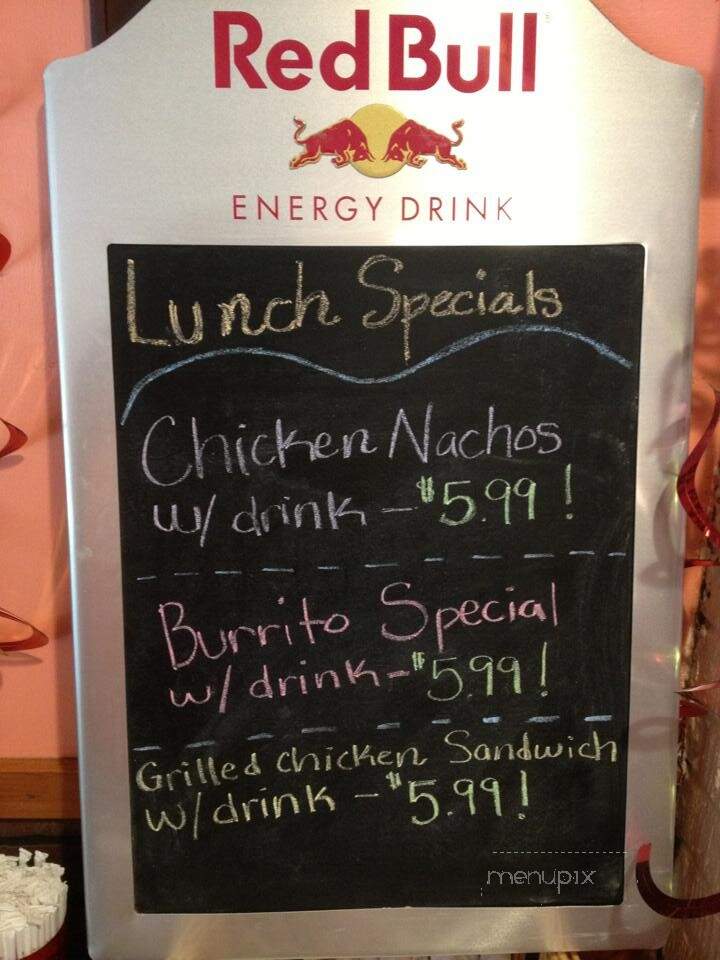 Red Bull
ENERGY DRINK
Lunch Specials
Chicken Nachos
w/ drink - $5.99!
Burrito Special
w/ drink - $5.99!
Grilled chicken Sandwich
w/ drink - $5.99!
menupix